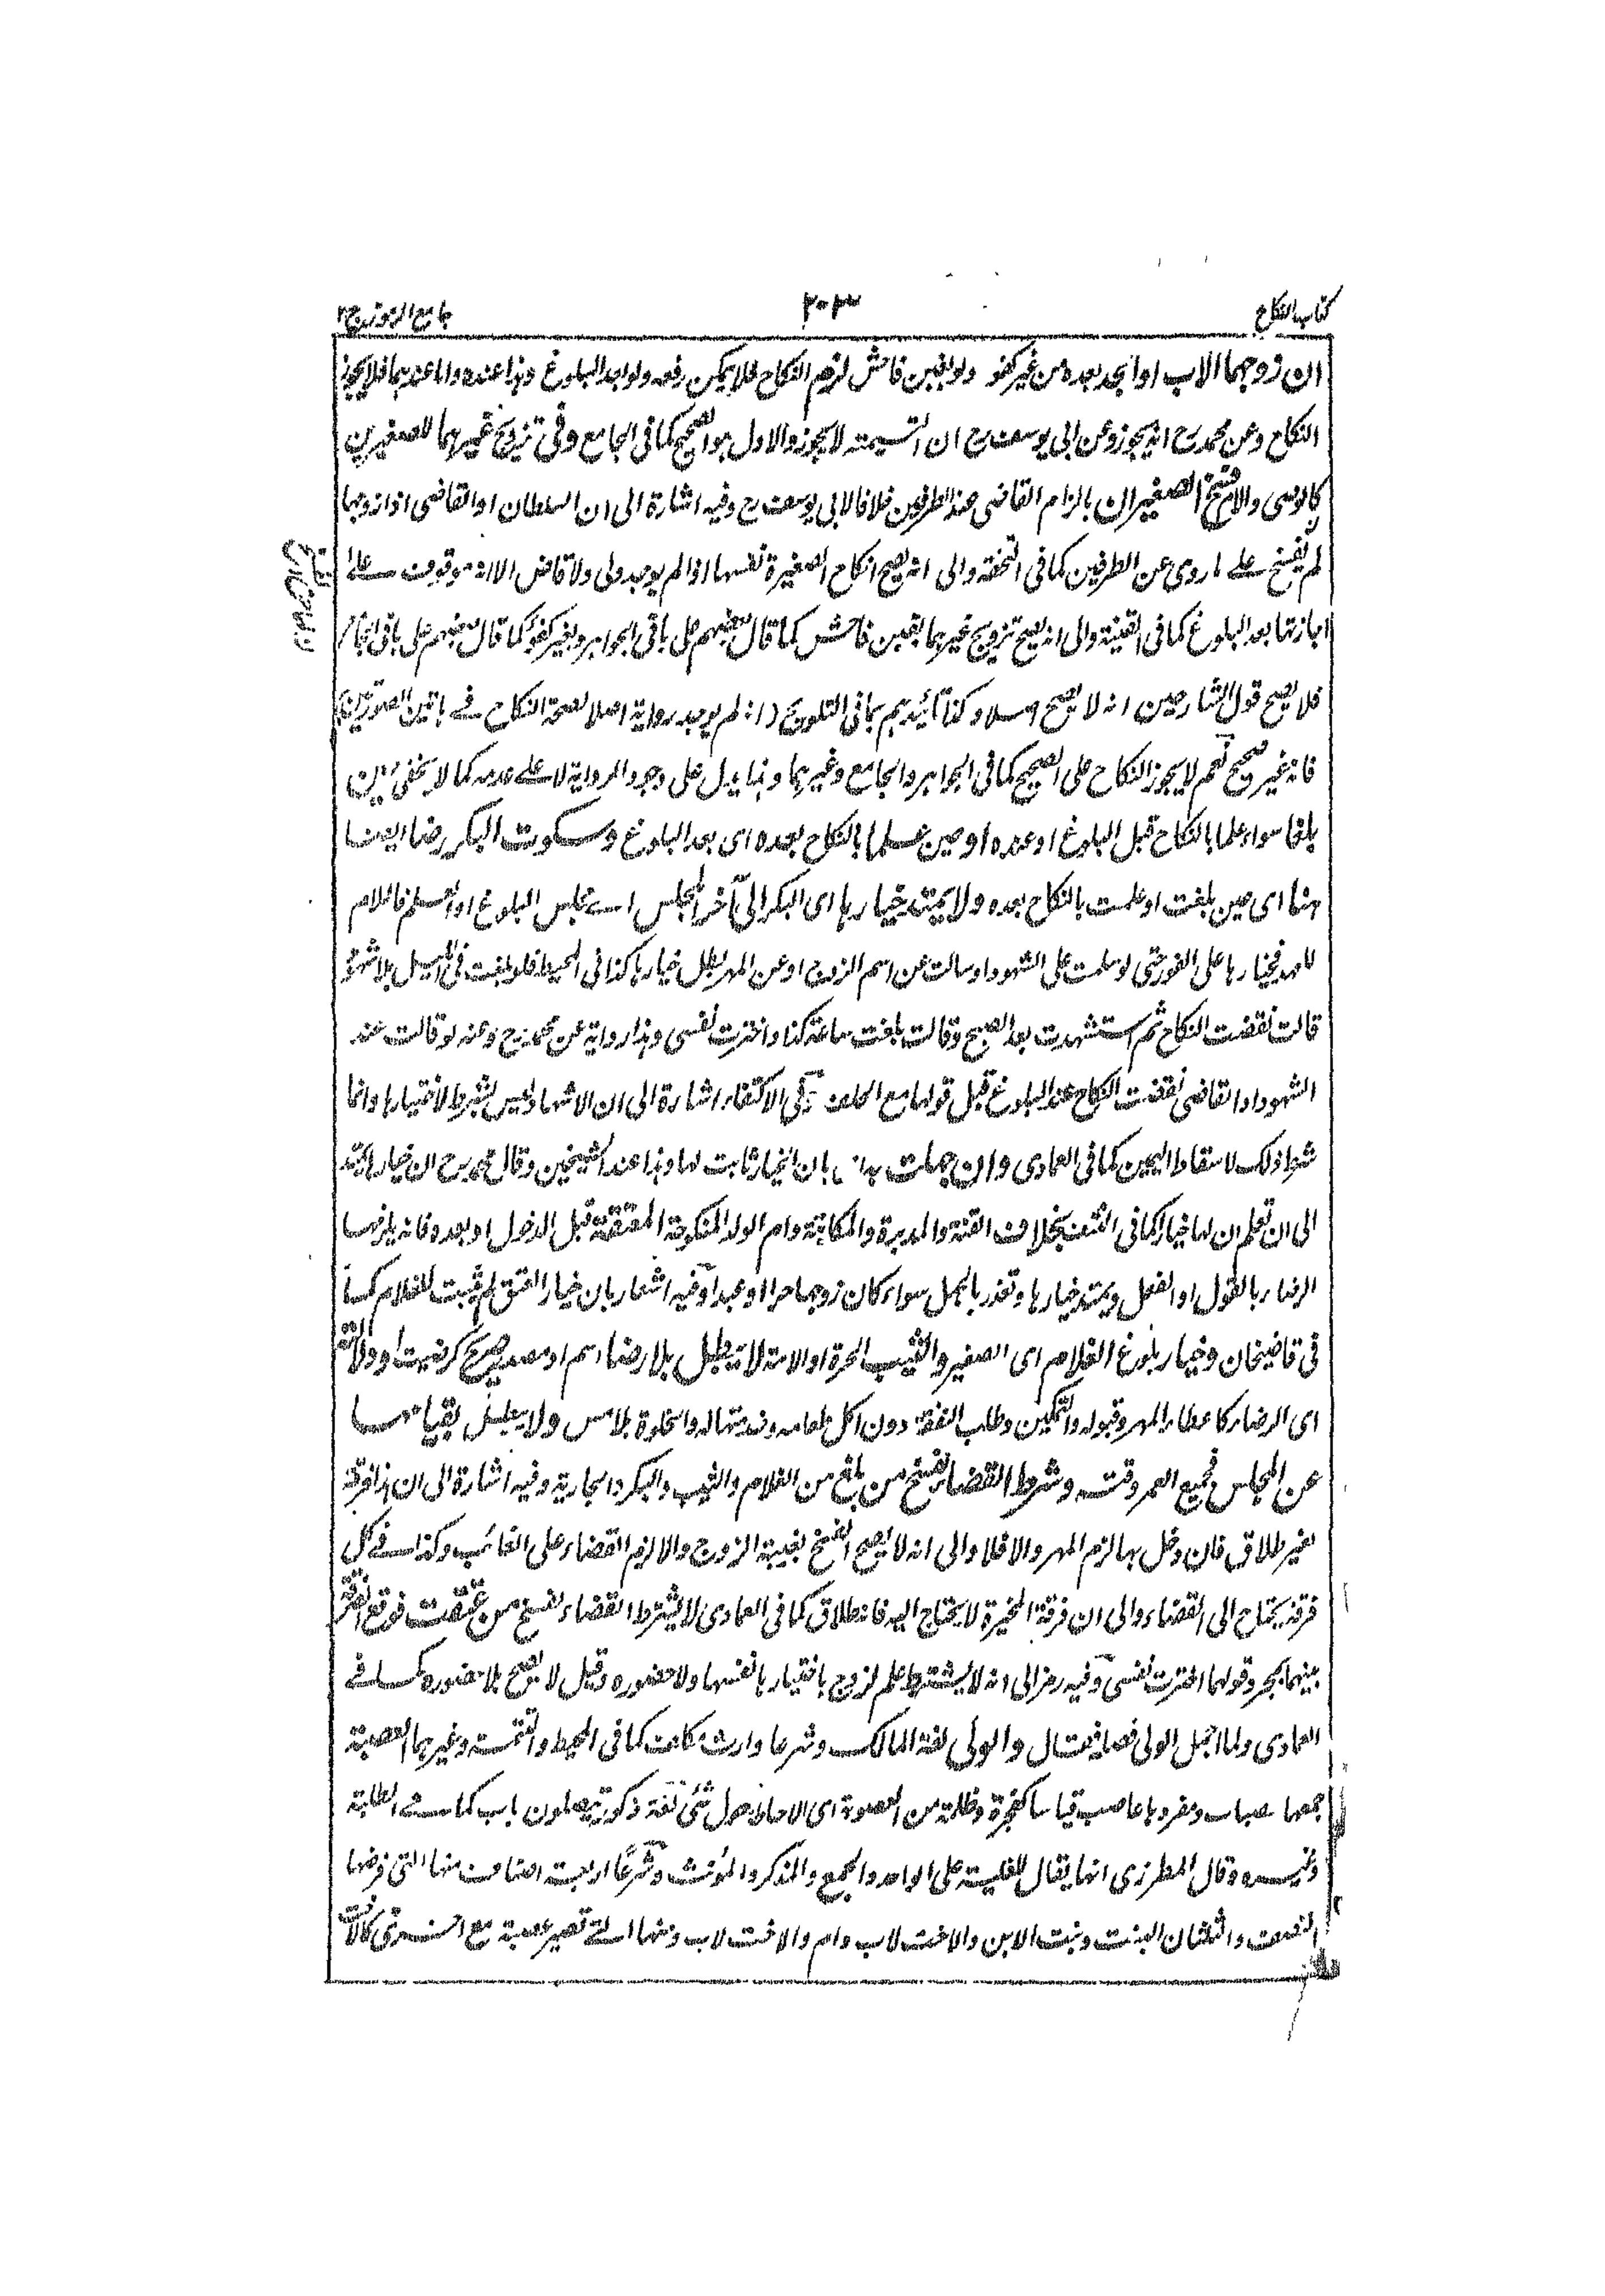 كتاب النكاح
٢٠٣
جامع الرموز ج ٢
ان زوجهما الاب او الجد بعده من غير كفو ولو بغبن فاحش لزم النكاح فلا يمكن رفعه ولو بعد البلوغ وهذا عنده واما عندهما فلا يجوز
النكاح وعن محمد رح انه يجوز وعن ابى يوسف رح ان التسمية لا يجوز والاول هو الصحيح كما فى الجامع وفى تزويج غيرهما للصغيرين
كالوصى والام فسخ الصغيران بالزام القاضى عند الطرفين خلافا لابى يوسف رح وفيه اشارة الى ان السلطان او القاضى اذا زوجها
لم يفسخ على ما روى عن الطرفين كما فى التحفة والى انه يصح انكاح الصغيرة نفسها اذا لم يوجد ولى ولا قاض الا انه موقوف على
اجازتها بعد البلوغ كما فى القنية والى انه يصح تزويج غيرهما بغبن فاحش كما قال بعضهم على باقى الجواهر وبغير كفو كما قال بعضهم على باقى
فلا يصح قول الشارحين انه لا يصح اصلا وكذا تأييدهم بما فى التلويح انه لم يوجد رواية اصلا لصحة النكاح فى هاتين الصورتين
فانه غير صحيح نعم لا يجوز النكاح على الصحيح كما فى الجواهر والجامع وغيرهما وهذا يدل على وجود الرواية لا على عدمه كما لا يخفى حين
بلغا سواء علما بالنكاح قبل البلوغ او عنده او حين علما بالنكاح بعده اى بعد البلوغ وسكوت البكر رضا ايضا
هنا اى حين بلغت او علمت بالنكاح بعده ولا يمتد خيارها اى البكر الى آخر المجلس اى مجلس البلوغ او العلم فاللام
للعهد فخيارها على الفور حتى لو سلمت على الشهود او سالت عن اسم الزوج او عن المهر بطل خيارها كذا فى المحيط فلو بلغت فى الليل بلا شهود
قالت نقضت النكاح ثم استشهدت بعد الصبح وقالت بلغت ساعة كذا واخترت نفسى وهذا رواية عن محمد رح وعنه لو قالت عند
الشهود او القاضى نقضت النكاح عند البلوغ قبل قولها مع الحلف وفى الاكتفاء اشارة الى ان الاشهاد ليس بشرط لاختيارها وانما
شرط ذلك لاسقاط اليمين كما فى العمادى وان جهلت به اى بان الخيار ثابت لها وهذا عند الشيخين وقال محمد رح ان خيارها يمتد
الى ان تعلم ان لها خيارا كما فى النتف بخلاف القنة والمدبرة والمكاتبة وام الولد المنكوحة المعتقة قبل الدخول او بعده فانه يلزمها
الرضاء بالقول او الفعل ويمتد خيارها وتعذر بالجهل سواء كان زوجها حرا او عبدا وفيه اشعار بان خيار العتق لم يثبت للغلام كما
فى قاضيخان وخيار بلوغ الغلام اى الصغير والثيب الحرة او الامة لا يبطل بلا رضا اسم او مصدر صريح كرضيت او دلالة
اى الرضاء كاعطاء المهر وقبوله والتمكين وطلب النفقة دون اكل طعامه وخدمتها له والخلوة بلا مس ولا يبطل بقيامهما
عن المجلس فجميع العمر وقته وشرط القضاء لفسخ من بلغ من الغلام والثيب والبكر والجارية وفيه اشارة الى ان هذا فرقة
بغير طلاق فان دخل بها لزم المهر والا فلا والى انه لا يصح الفسخ بغيبة الزوج والا لزم القضاء على الغائب وكذا فى كل
فرقة يحتاج الى القضاء والى ان فرقة المخيرة لا يحتاج اليه فانه طلاق كما فى العمادى لا يشترط القضاء لفسخ من عتقت فوقع الفرقة
بينهما بمجرد قولها اخترت نفسى وفيه رمز الى انه لا يشترط علم الزوج باختيارها نفسها ولا حضوره وقيل لا يصح بلا حضوره كما فى
العمادى ولما اجمل الولى فصله فقال والولى لغة المالك وشرعا وارث مكلف كما فى المحيط والتتمة وغيرهما العصبة
جمعها عصبات ومفردها عاصب قياسا كفجرة وظلمة من العصوبة اى الاحاطة حول شئ لغة ذكور يتصلون باب كما فى الطلبة
وغيره وقال المطرزى انها يقال للغلبة على الواحد والجمع والمذكر والمؤنث وشرعا اربعة اصناف منها التى فرضها
النصف والثلثان البنت وبنت الابن والاخت لاب وام والاخت لاب ومنها التى تصير عصبة مع اخرى كالاخت